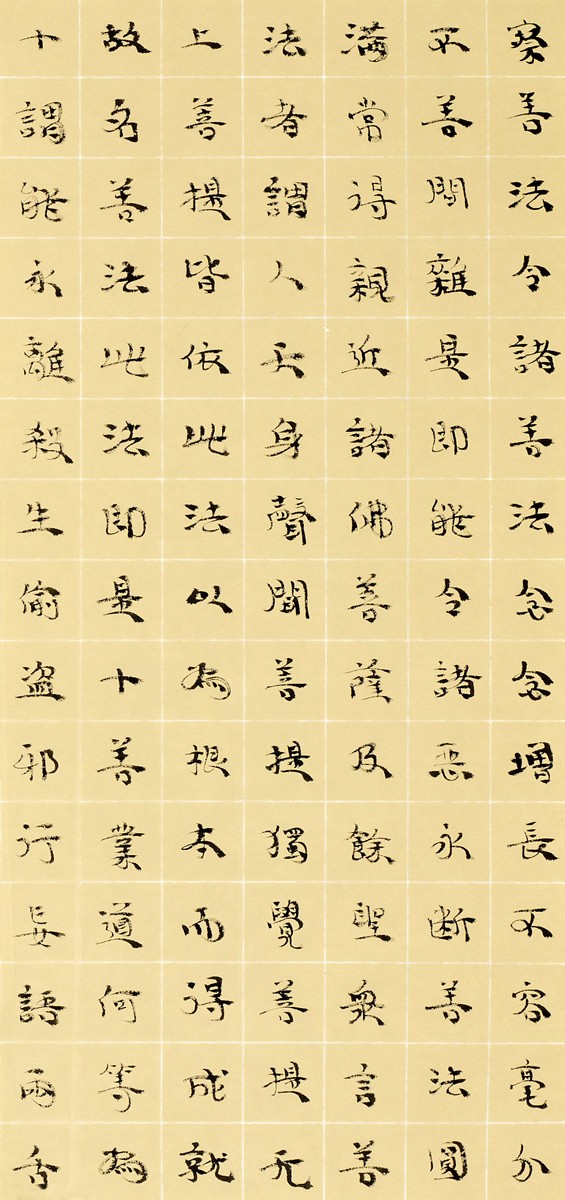 察善法令諸善法念念增長不容毫分
不善間雜是即能令諸惡永断善法圓
滿當得親近諸佛菩薩及餘聖衆言善
法者謂人天身聲聞菩提獨覺菩提无
上菩提皆依此法以為根本而得成就
故名善法此法即是十善業道何等為
十謂能永離殺生偷盜邪行妄語兩舌